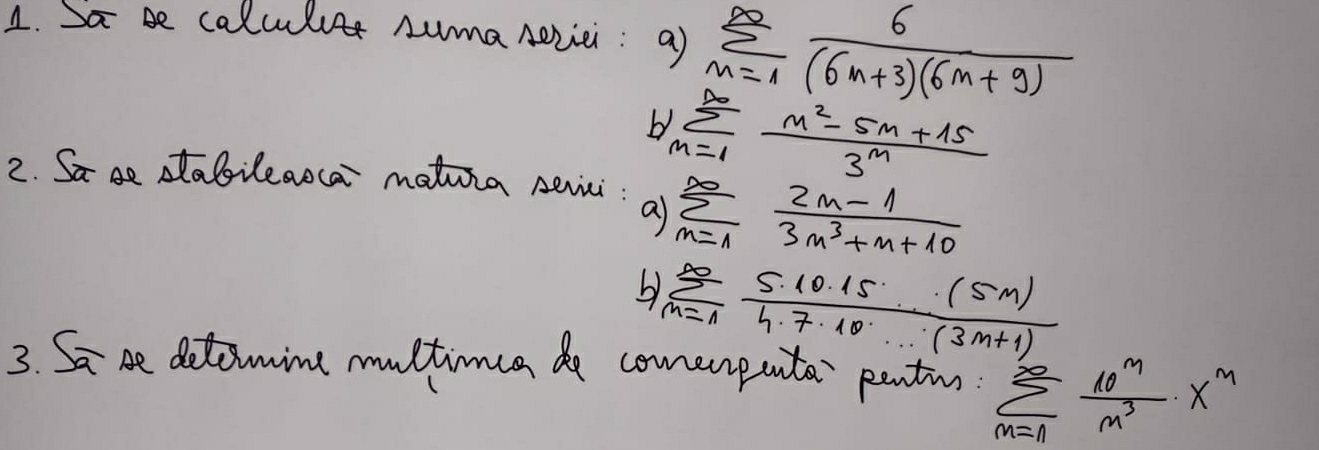 1. Să se calculeze suma seriei : a) ∑_{n=1}^{∞} 6/((6n+3)(6n+9))
b) ∑_{n=1}^{∞} (n²-5n+15)/3ⁿ
2. Să se stabilească natura seriei : a) ∑_{n=1}^{∞} (2n-1)/(3n³+n+10)
b) ∑_{n=1}^{∞} (5·10·15·...·(5n))/(4·7·10·...·(3n+1))
3. Să se determine mulțimea de convergență pentru : ∑_{n=1}^{∞} 10ⁿ/n³ · xⁿ